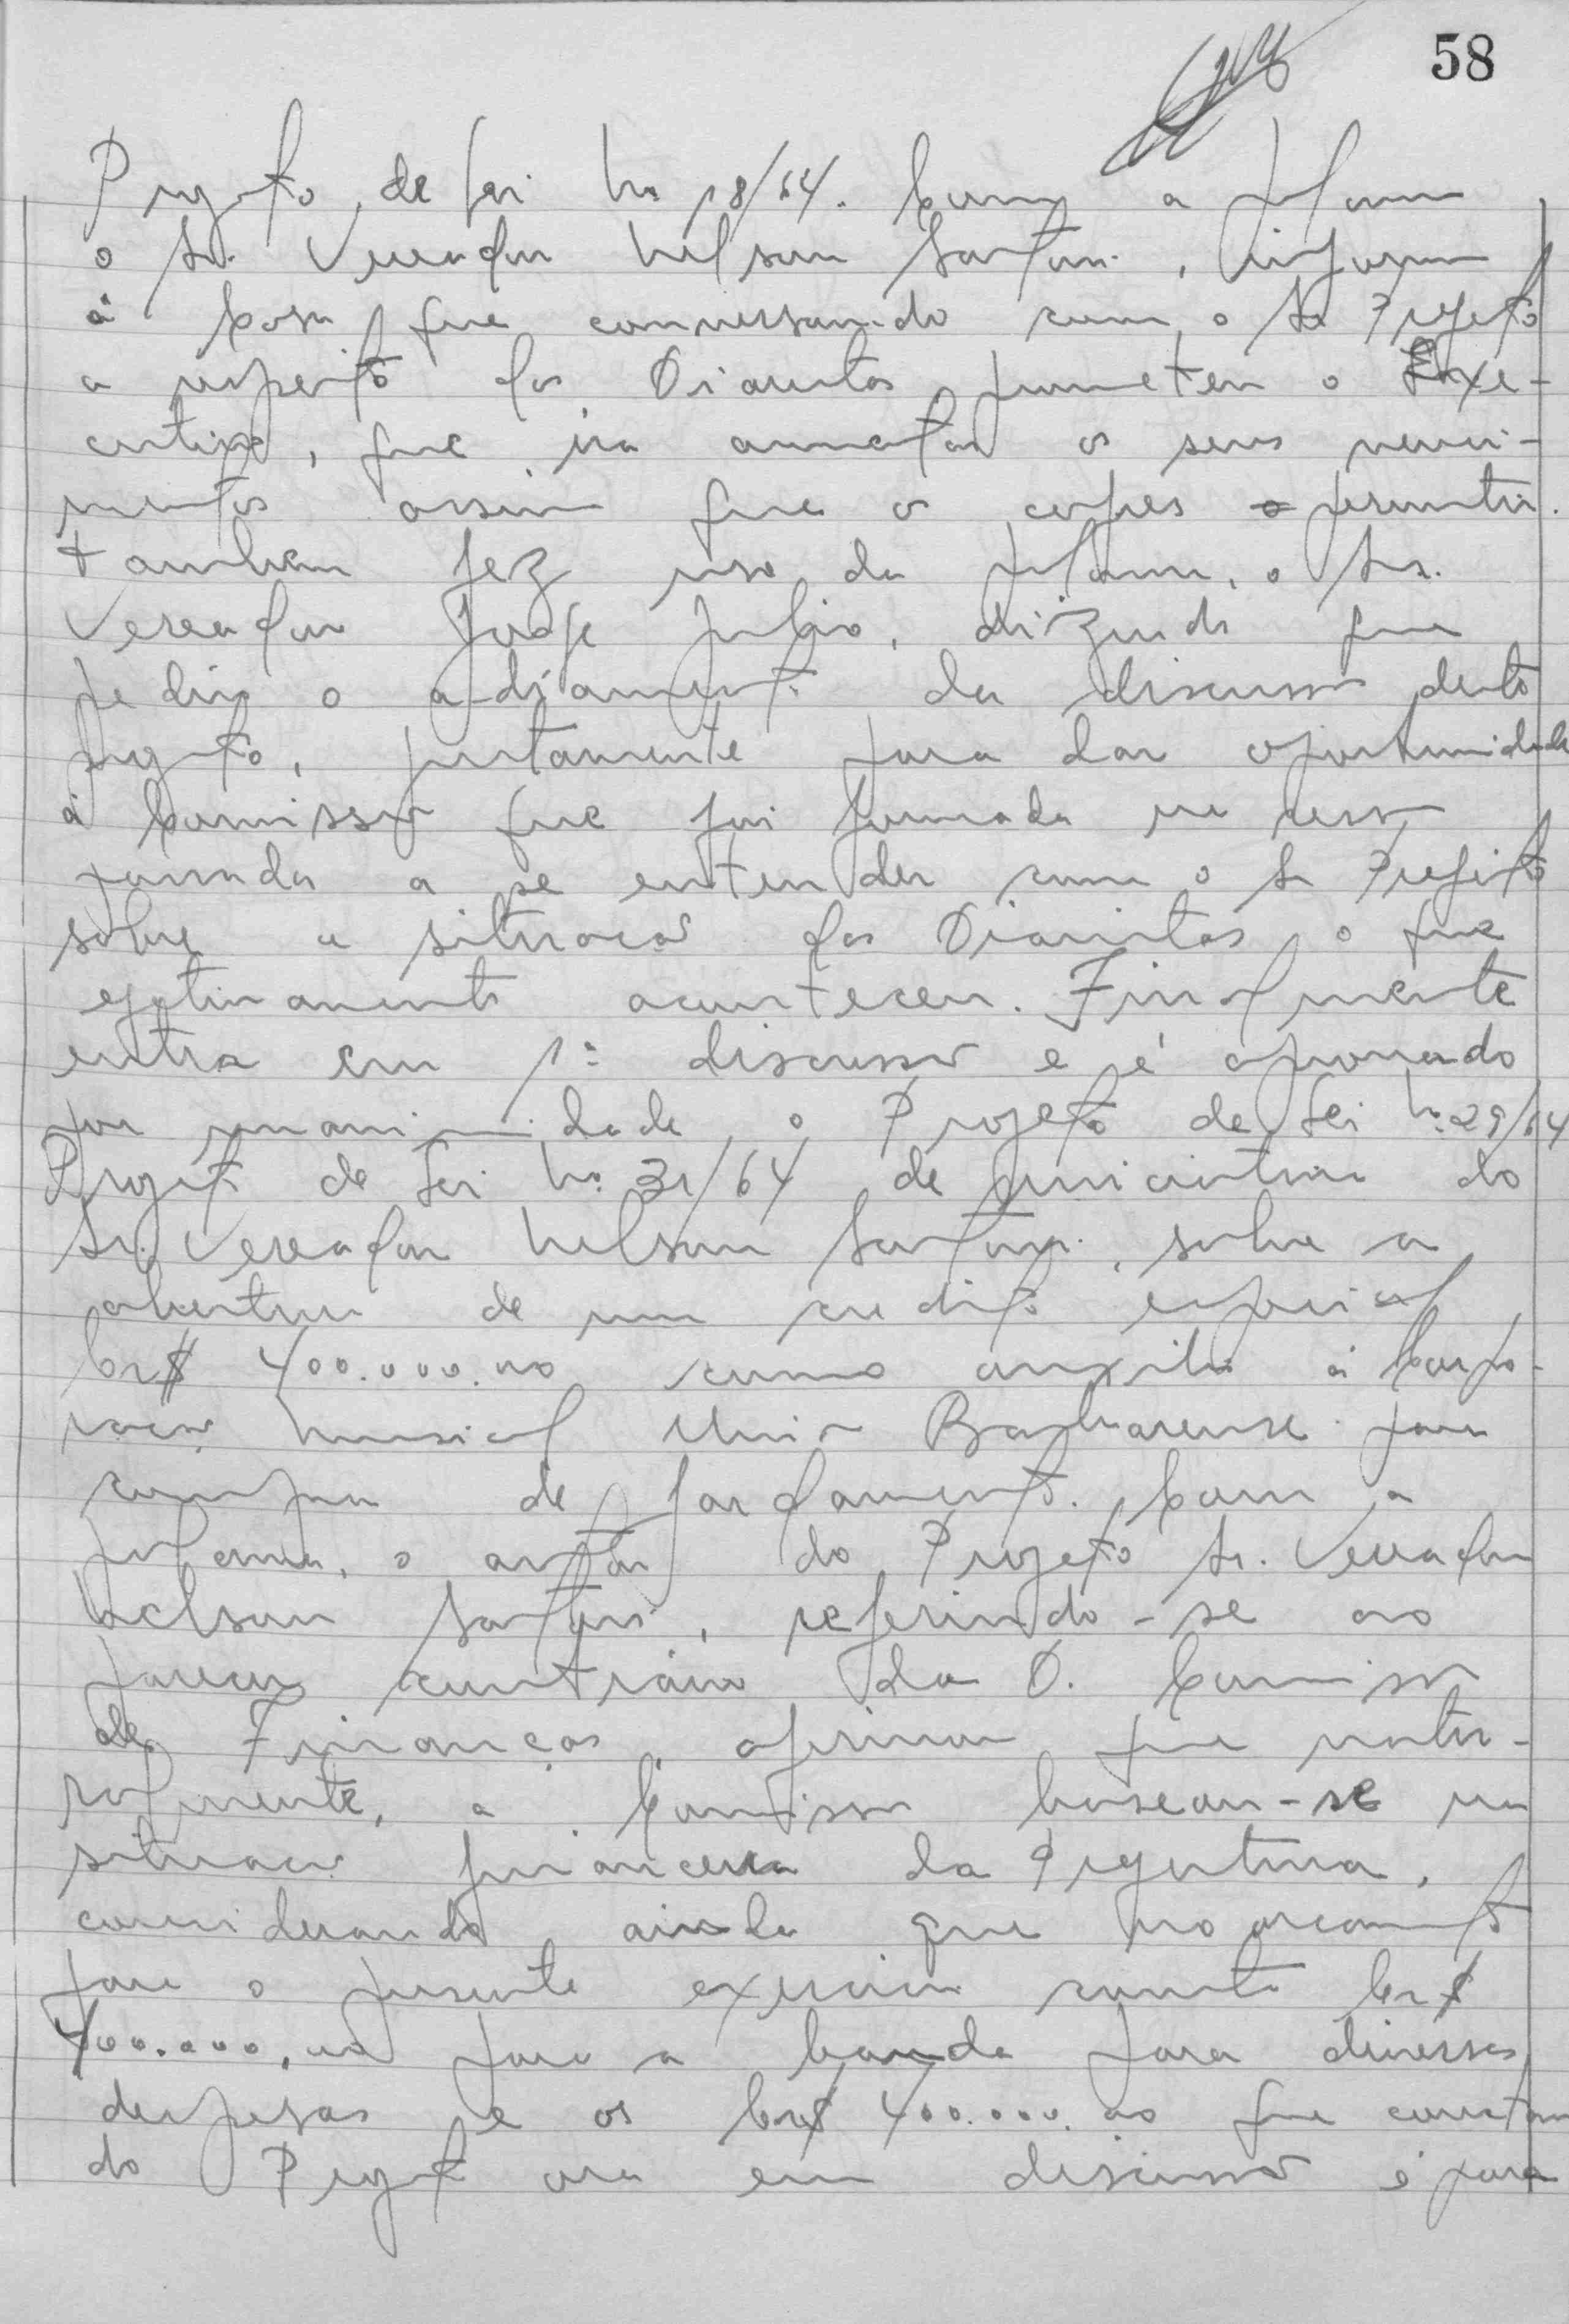 58
Projeto de Lei No 18/64. Com a palavra
o Sr. Vereador Nelson Santori, informa
á Casa que conversando com o Sr Prefeito
a respeito dos Diaristas, prometeu o Exe-
cutivo, que iria aumentar os seus venci-
mentos assim que os cofres permitir.
tambem fez uso da palavra, o Sr.
Vereador Jorge Julio, dizendo que
pediu o adiamento da discussão deste
projeto, justamente para dar oportunidade
á Comissão que foi formada na sessão
passada a se entender com o Sr Prefeito
sobre a situação dos Diaristas, o que
efetivamente aconteceu. Finalmente
entra em 1ª discussão e é aprovado
por unanimidade, o Projeto de Lei No 29/64
Projeto de Lei No 31/64 de iniciativa do
Sr. Vereador Nelson Santori, sobre a
abertura de um credito especial
Cr$ 400.000.00 como auxilio á Corpo-
ração Musical União Barbarense para
compra de fardamento. Com a
palavra, o autor do Projeto Sr. Vereador
Nelson Santori, referindo-se ao
parecer contrário da D. Comissão
de Finanças, afirmou que natu-
ralmente, a Comissão baseou-se na
situação financeira da Prefeitura,
considerando ainda que no orçamento
para o presente exercicio consta Cr$
400.000,00 para a banda para diversas
despesas e os Cr$ 400.000.00 que constam
do Projeto ora em discussão é para